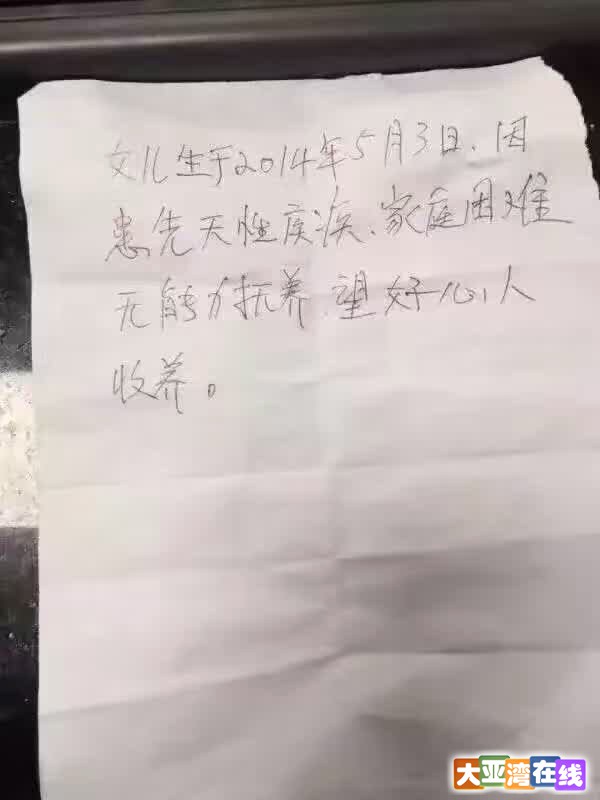 女儿生于2014年5月3日、因
患先天性疾疾、家庭困难
无能力抚养、望好心人
收养。
大亚湾在线